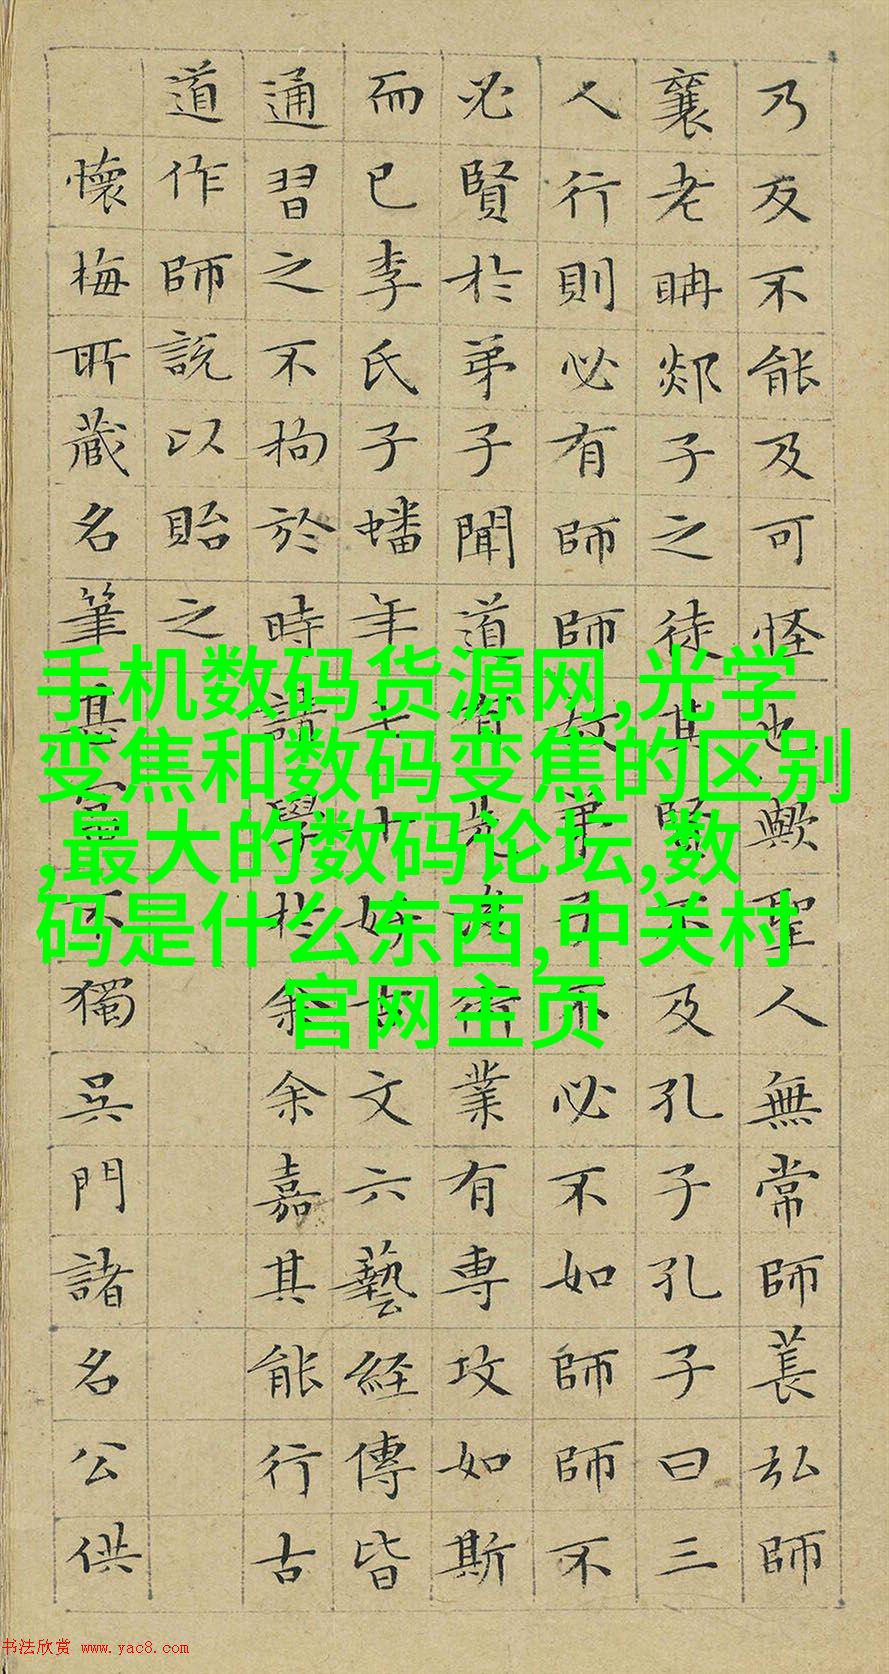 乃反不能及可怪也歟聖人無常師萇弘師
襄老聃郯子之徒其賢不及孔子孔子曰三
人行則必有師師故弟子不必不如師師不
必賢於弟子聞道有先後術業有専攻如斯
而已李氏子蟠年十七好古文六藝経傳皆
通習之不拘於時請學於余余嘉其能行古
道作師說以貽之
懷梅所藏名筆甚富不獨吳門諸名公供
手机数码货源网,光学
变焦和数码变焦的区别
,最大的数码论坛,数
码是什么东西,中关村
官网主页
书法欣赏 www.yac8.com